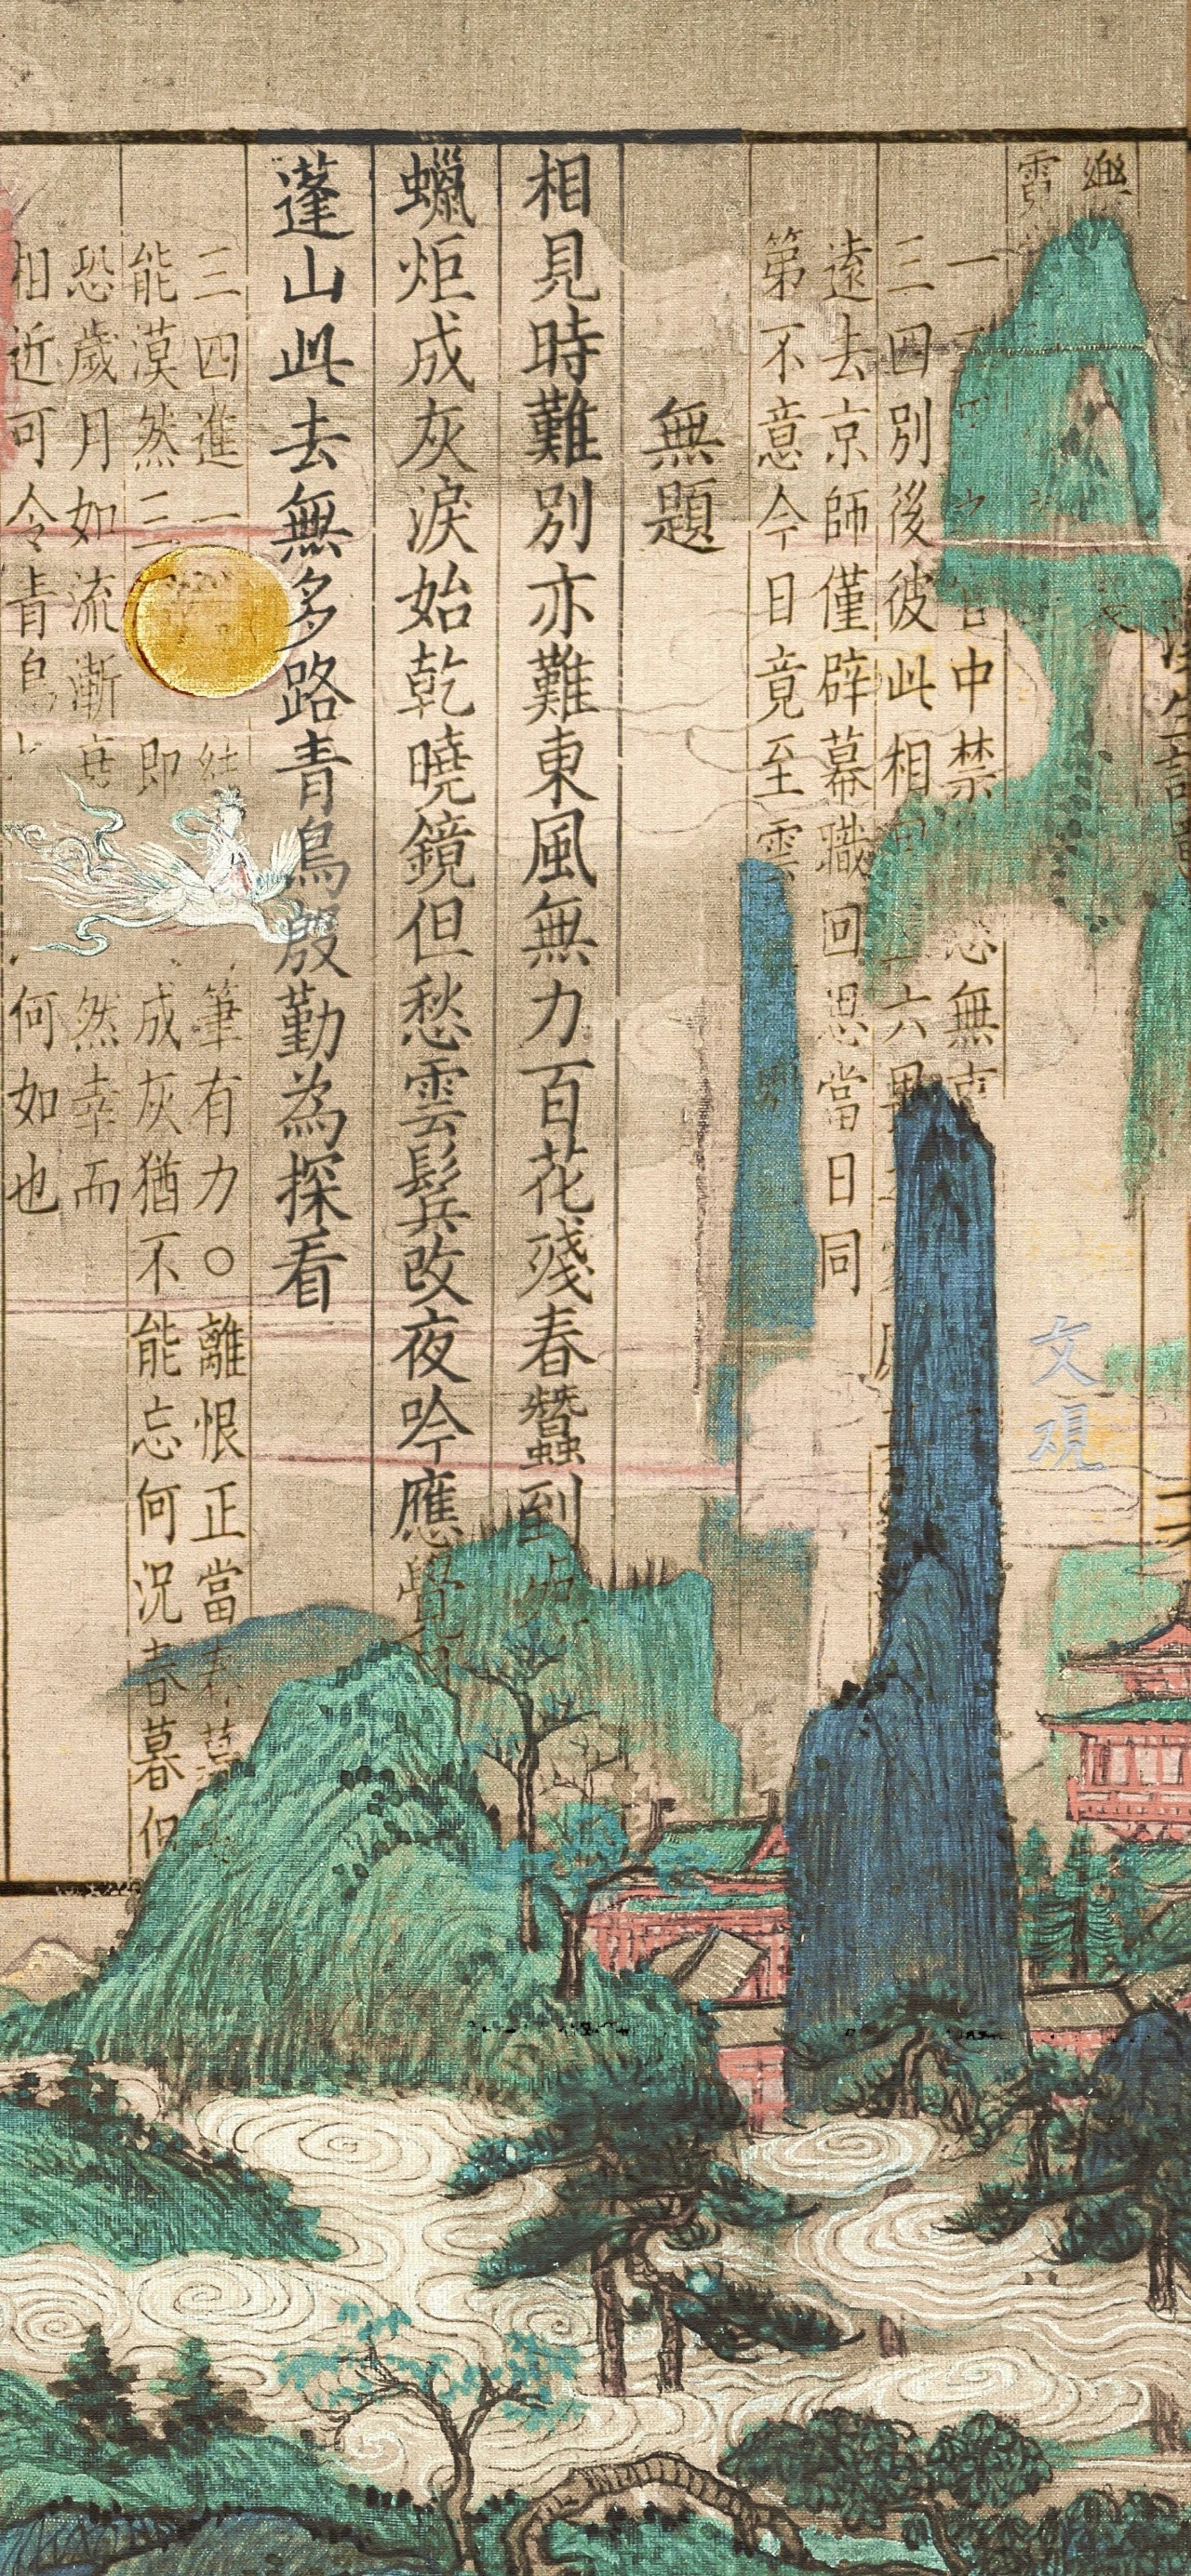 樂
一 中禁 無
三四別後彼此相 六
遠去京師僅辟幕職回思當日同
第不意今日竟至雲
無題
相見時難別亦難東風無力百花殘春蠶到
蠟炬成灰淚始乾曉鏡但愁雲鬢改夜吟應覺
蓬山此去無多路青鳥殷勤為探看
三四進一 結 筆有力○離恨正當春暮
能漠然三 即 成灰猶不能忘何況春暮但
恐歲月如流漸 然幸而
相近可令青鳥 何如也
文观